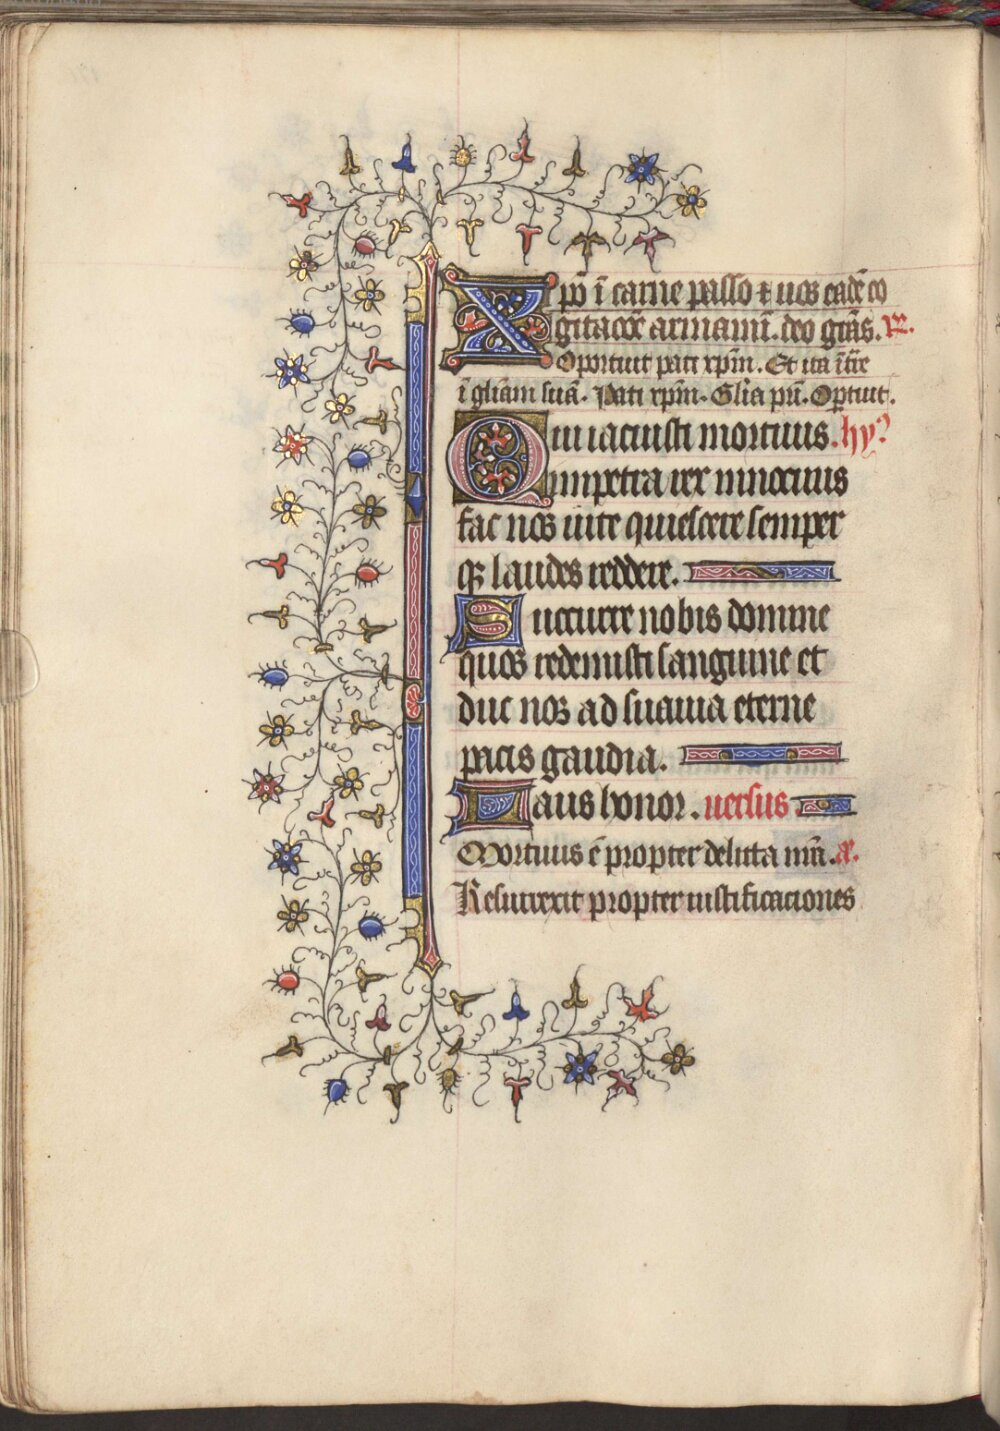 Xpō ī carne passo ⁊ uos eadē co
gitacōē armami̅. deo grās. R̅.
Oportuit pati xpm̅. Et ita īt̅re
ī gl̅iam suā. Pati xpm̅. Gl̅ia pr̅i. Op̲tuit.
Qui iacuisti mortuus. hy?
impetra rex innocuus
fac nos in te quiescere semper
qꝫ laudes reddere.
Succurre nobis domine
quos redemisti sanguine et
duc nos ad suauia eterne
pacis gaudia.
Laus honor. uersus
Mortuus ē propter delicta nr̅a. a.
Resurrexit propter iustificaciones